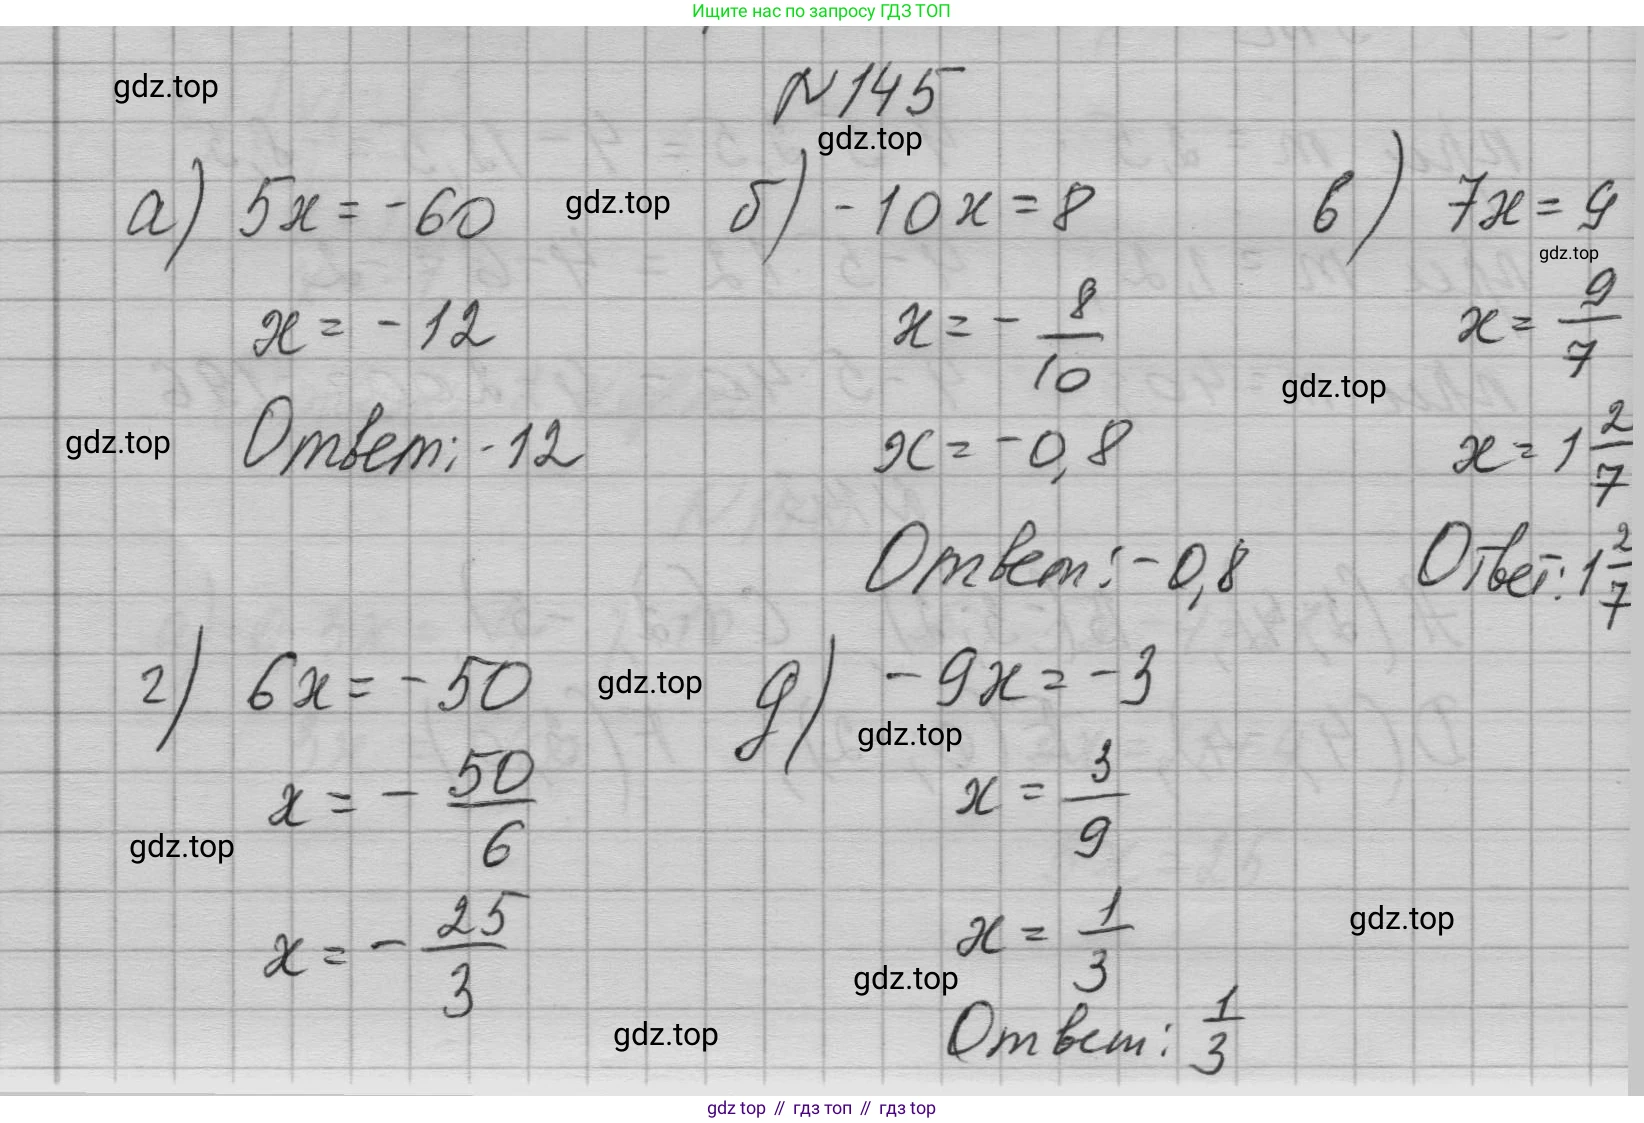 Ищите нас по запросу ГДЗ ТОП
gdz.top
№145
gdz.top
а) 5x = -60
gdz.top
б) -10x = 8
в) 7x = 9
gdz.top
x = -12
x = - 8/10
x = 9/7
gdz.top
gdz.top
Ответ: -12
x = -0,8
x = 1 2/7
Ответ: -0,8
Ответ: 1 2/7
г) 6x = -50
gdz.top
д) -9x = -3
gdz.top
x = - 50/6
x = 3/9
gdz.top
x = - 25/3
x = 1/3
gdz.top
gdz.top
gdz.top
Ответ: 1/3
gdz top // гдз топ // гдз top